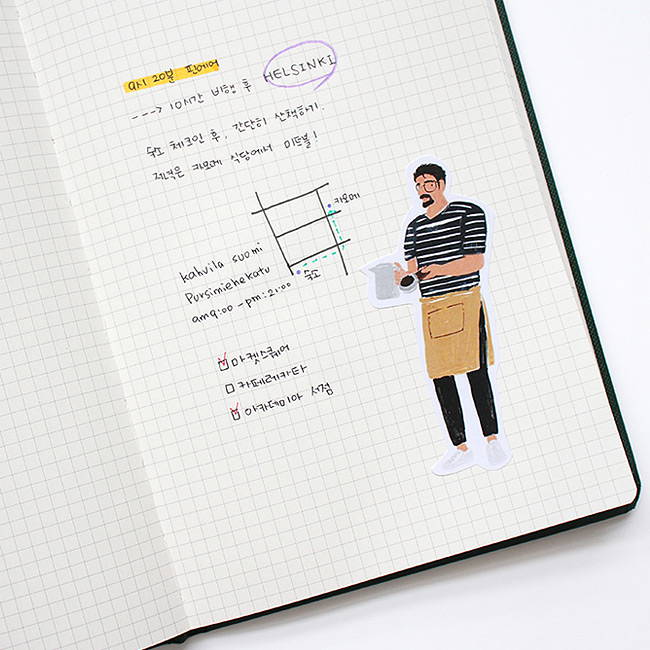 9시 20분 핀에어
---> 10시간 비행 후 HELSINKI
숙소 체크인 후, 간단히 산책하기.
저녁은 카모메 식당에서 미트볼!
카모메
숙소
kahvila suomi
Pursimiehekatu
am9:00 - pm:21:00
마켓스퀘어
카페레카타
아카데미아 서점